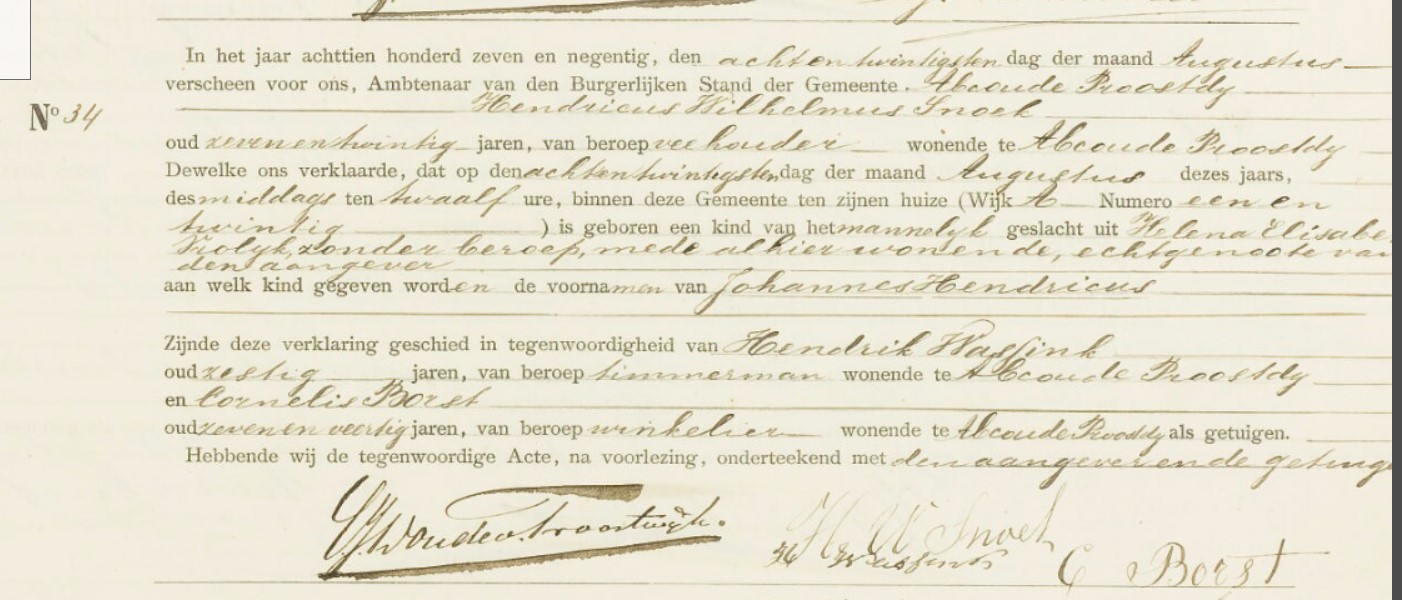 In het jaar achttien honderd zeven en negentig, den achtentwintigsten dag der maand Augustus
verscheen voor ons, Ambtenaar van den Burgerlijken Stand der Gemeente. Abcoude Proostdy
Hendricus Wilhelmus Snoek
No 34
oud zevenentwintig jaren, van beroep veehouder wonende te Abcoude Proostdy
Dewelke ons verklaarde, dat op den achtentwintigsten dag der maand Augustus dezes jaars,
des middags ten twaalf ure, binnen deze Gemeente ten zijnen huize (Wijk A Numero een en
twintig ) is geboren een kind van het mannelyk geslacht uit Helena Elisabe
Vrolyk, zonder beroep, mede alhier wonende, echtgenoote van
den aangever
aan welk kind gegeven worden de voornamen van Johannes Hendricus
Zijnde deze verklaring geschied in tegenwoordigheid van Hendrik Wassink
oud zestig jaren, van beroep timmerman wonende te Abcoude Proostdy
en Cornelis Borst
oud zevenenveertig jaren, van beroep winkelier wonende te Abcoude Proostdy als getuigen.
Hebbende wij de tegenwoordige Acte, na voorlezing, onderteekend met den aangever en de getuige
Troostwijk. H W Snoek
H Wassink C Borst